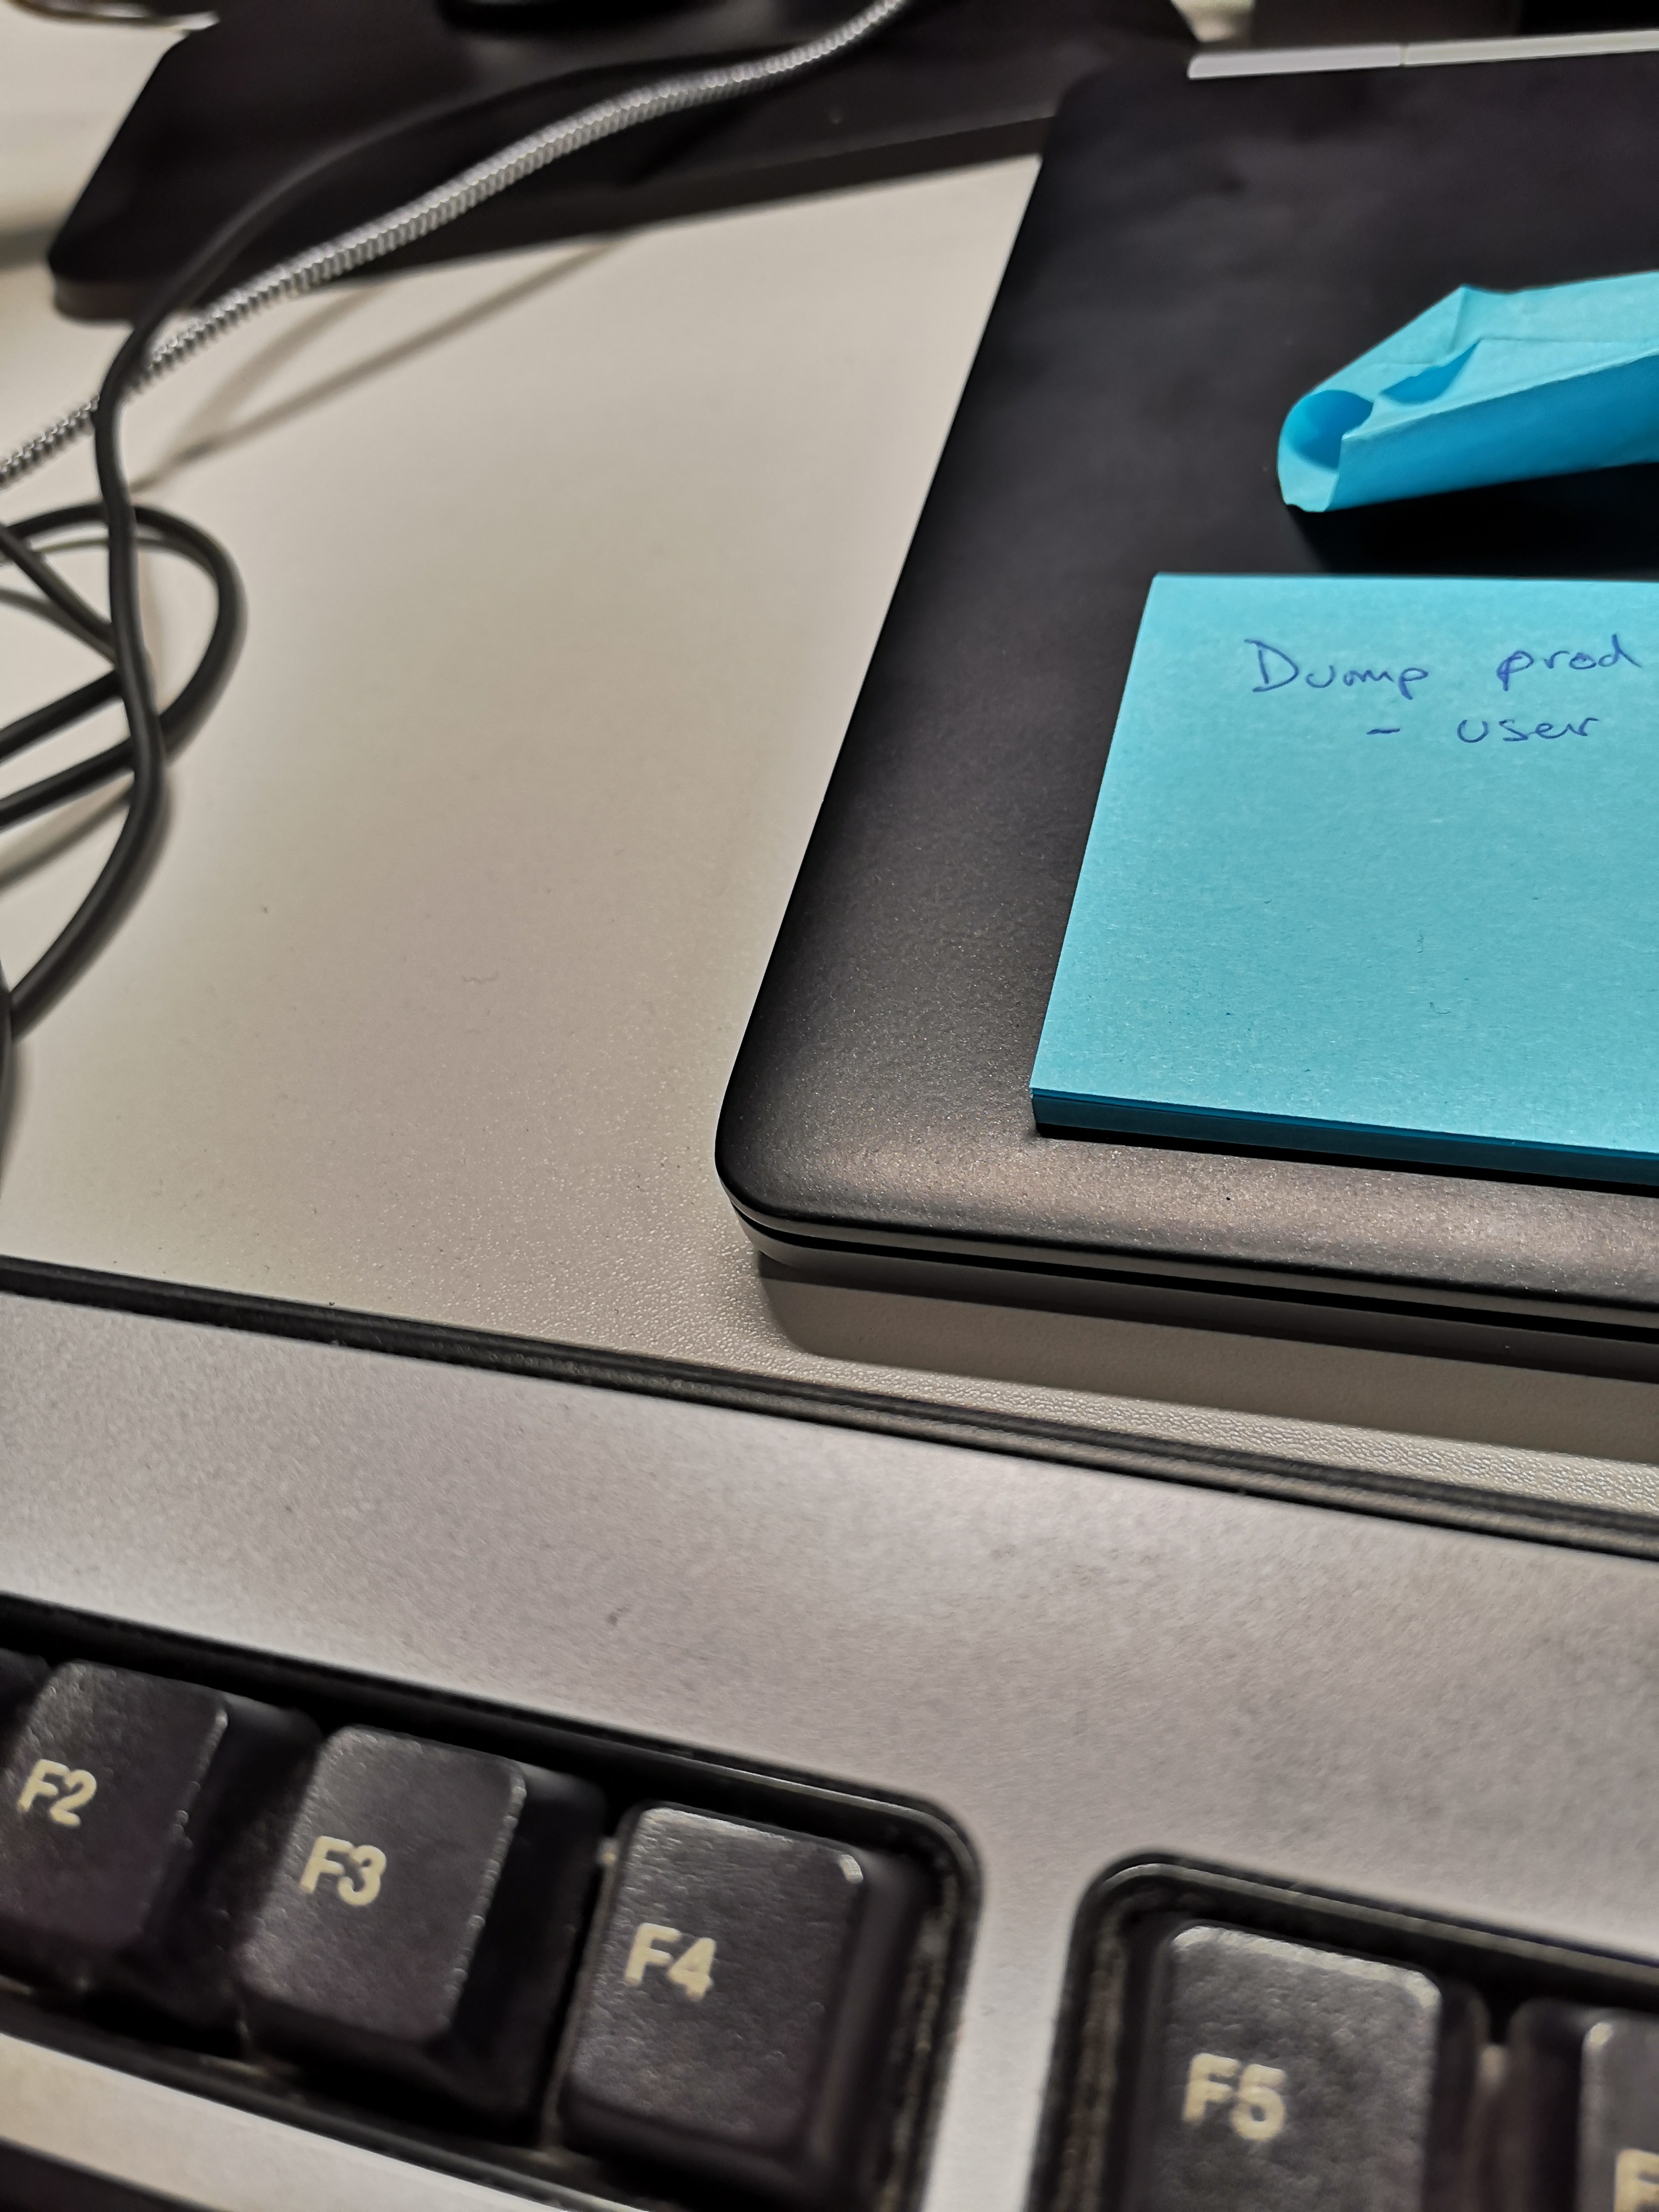 Dump prod
- user
F2
F3
F4
F5